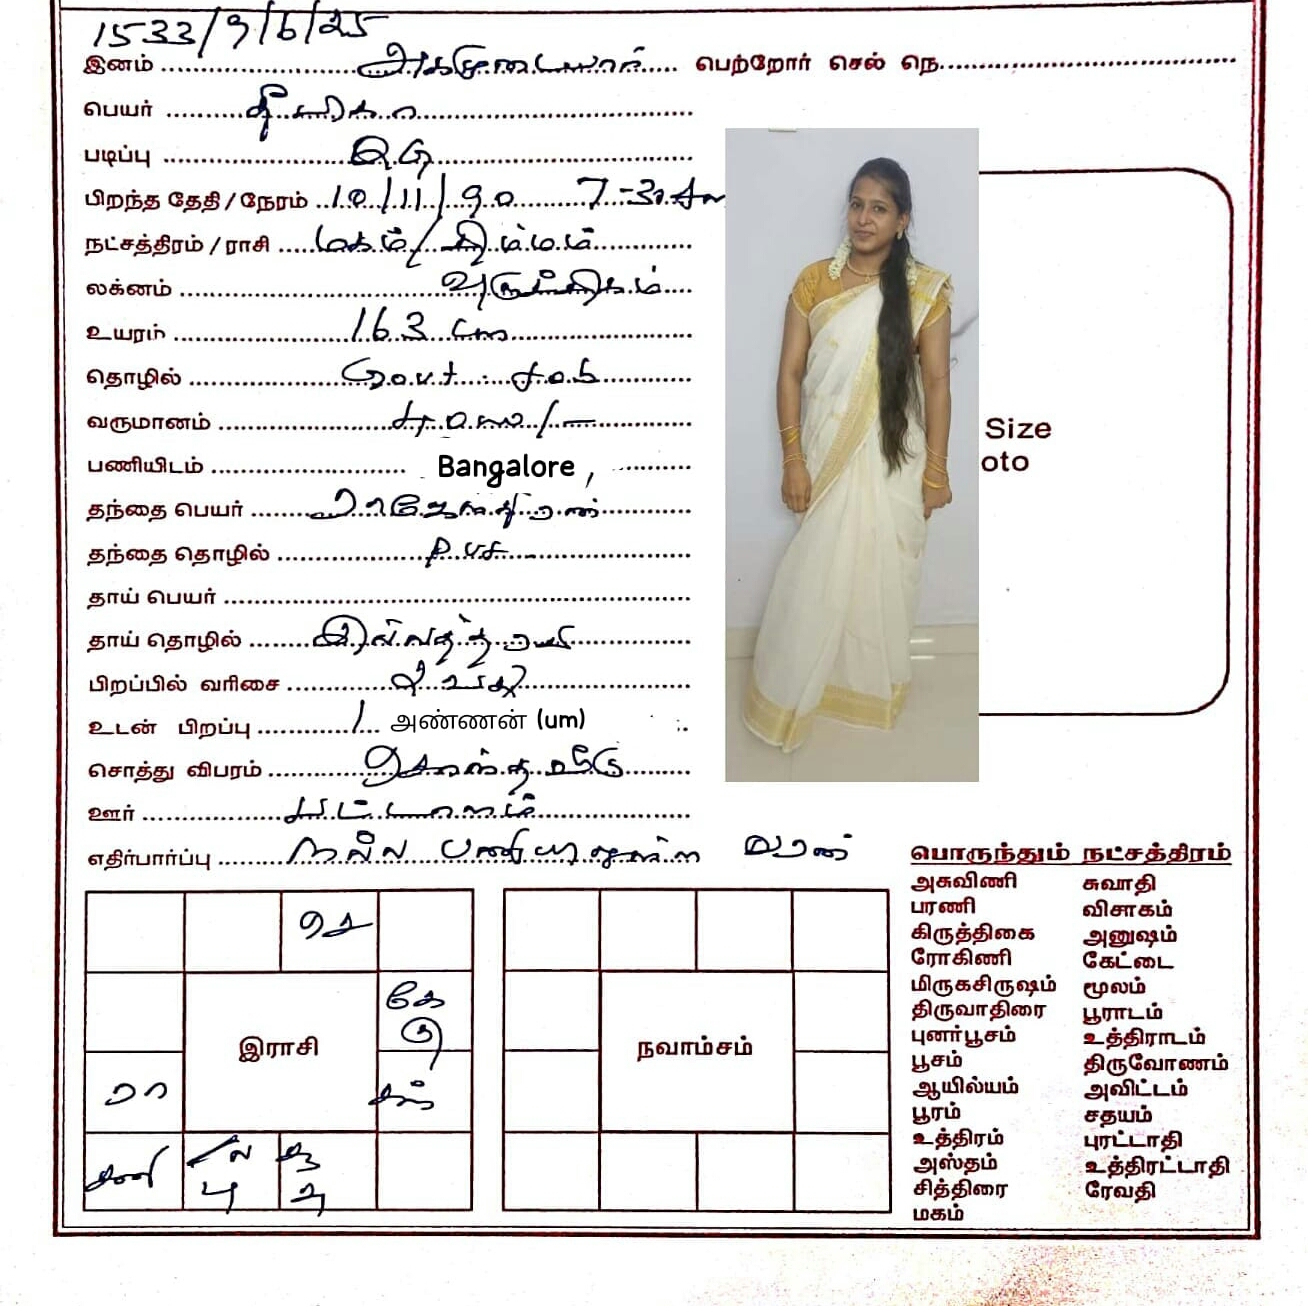 1533/9/6/25
இனம் அகமுடையார் பெற்றோர் செல் நெ.
பெயர்
படிப்பு
பிறந்த தேதி / நேரம் 10/11/90 7-30 Am
நட்சத்திரம் / ராசி மகம் / சிம்மம்
லக்னம் விருச்சிகம்
உயரம் 163 cm
தொழில் Govt
வருமானம்
பணியிடம் Bangalore ,
தந்தை பெயர்
தந்தை தொழில்
தாய் பெயர்
தாய் தொழில் இல்லத்தரசி
பிறப்பில் வரிசை
உடன் பிறப்பு 1 அண்ணன் (um)
சொத்து விபரம் சொந்த வீடு
ஊர்
எதிர்பார்ப்பு நல்ல பணியிலுள்ள வரன்
Size
oto
செ
கே
கு
இராசி
சந்
ரா
சனி
ல
பு
சு
நவாம்சம்
பொருந்தும் நட்சத்திரம்
அசுவிணி சுவாதி
பரணி விசாகம்
கிருத்திகை அனுஷம்
ரோகிணி கேட்டை
மிருகசிருஷம் மூலம்
திருவாதிரை பூராடம்
புனர்பூசம் உத்திராடம்
பூசம் திருவோணம்
ஆயில்யம் அவிட்டம்
பூரம் சதயம்
உத்திரம் புரட்டாதி
அஸ்தம் உத்திரட்டாதி
சித்திரை ரேவதி
மகம்